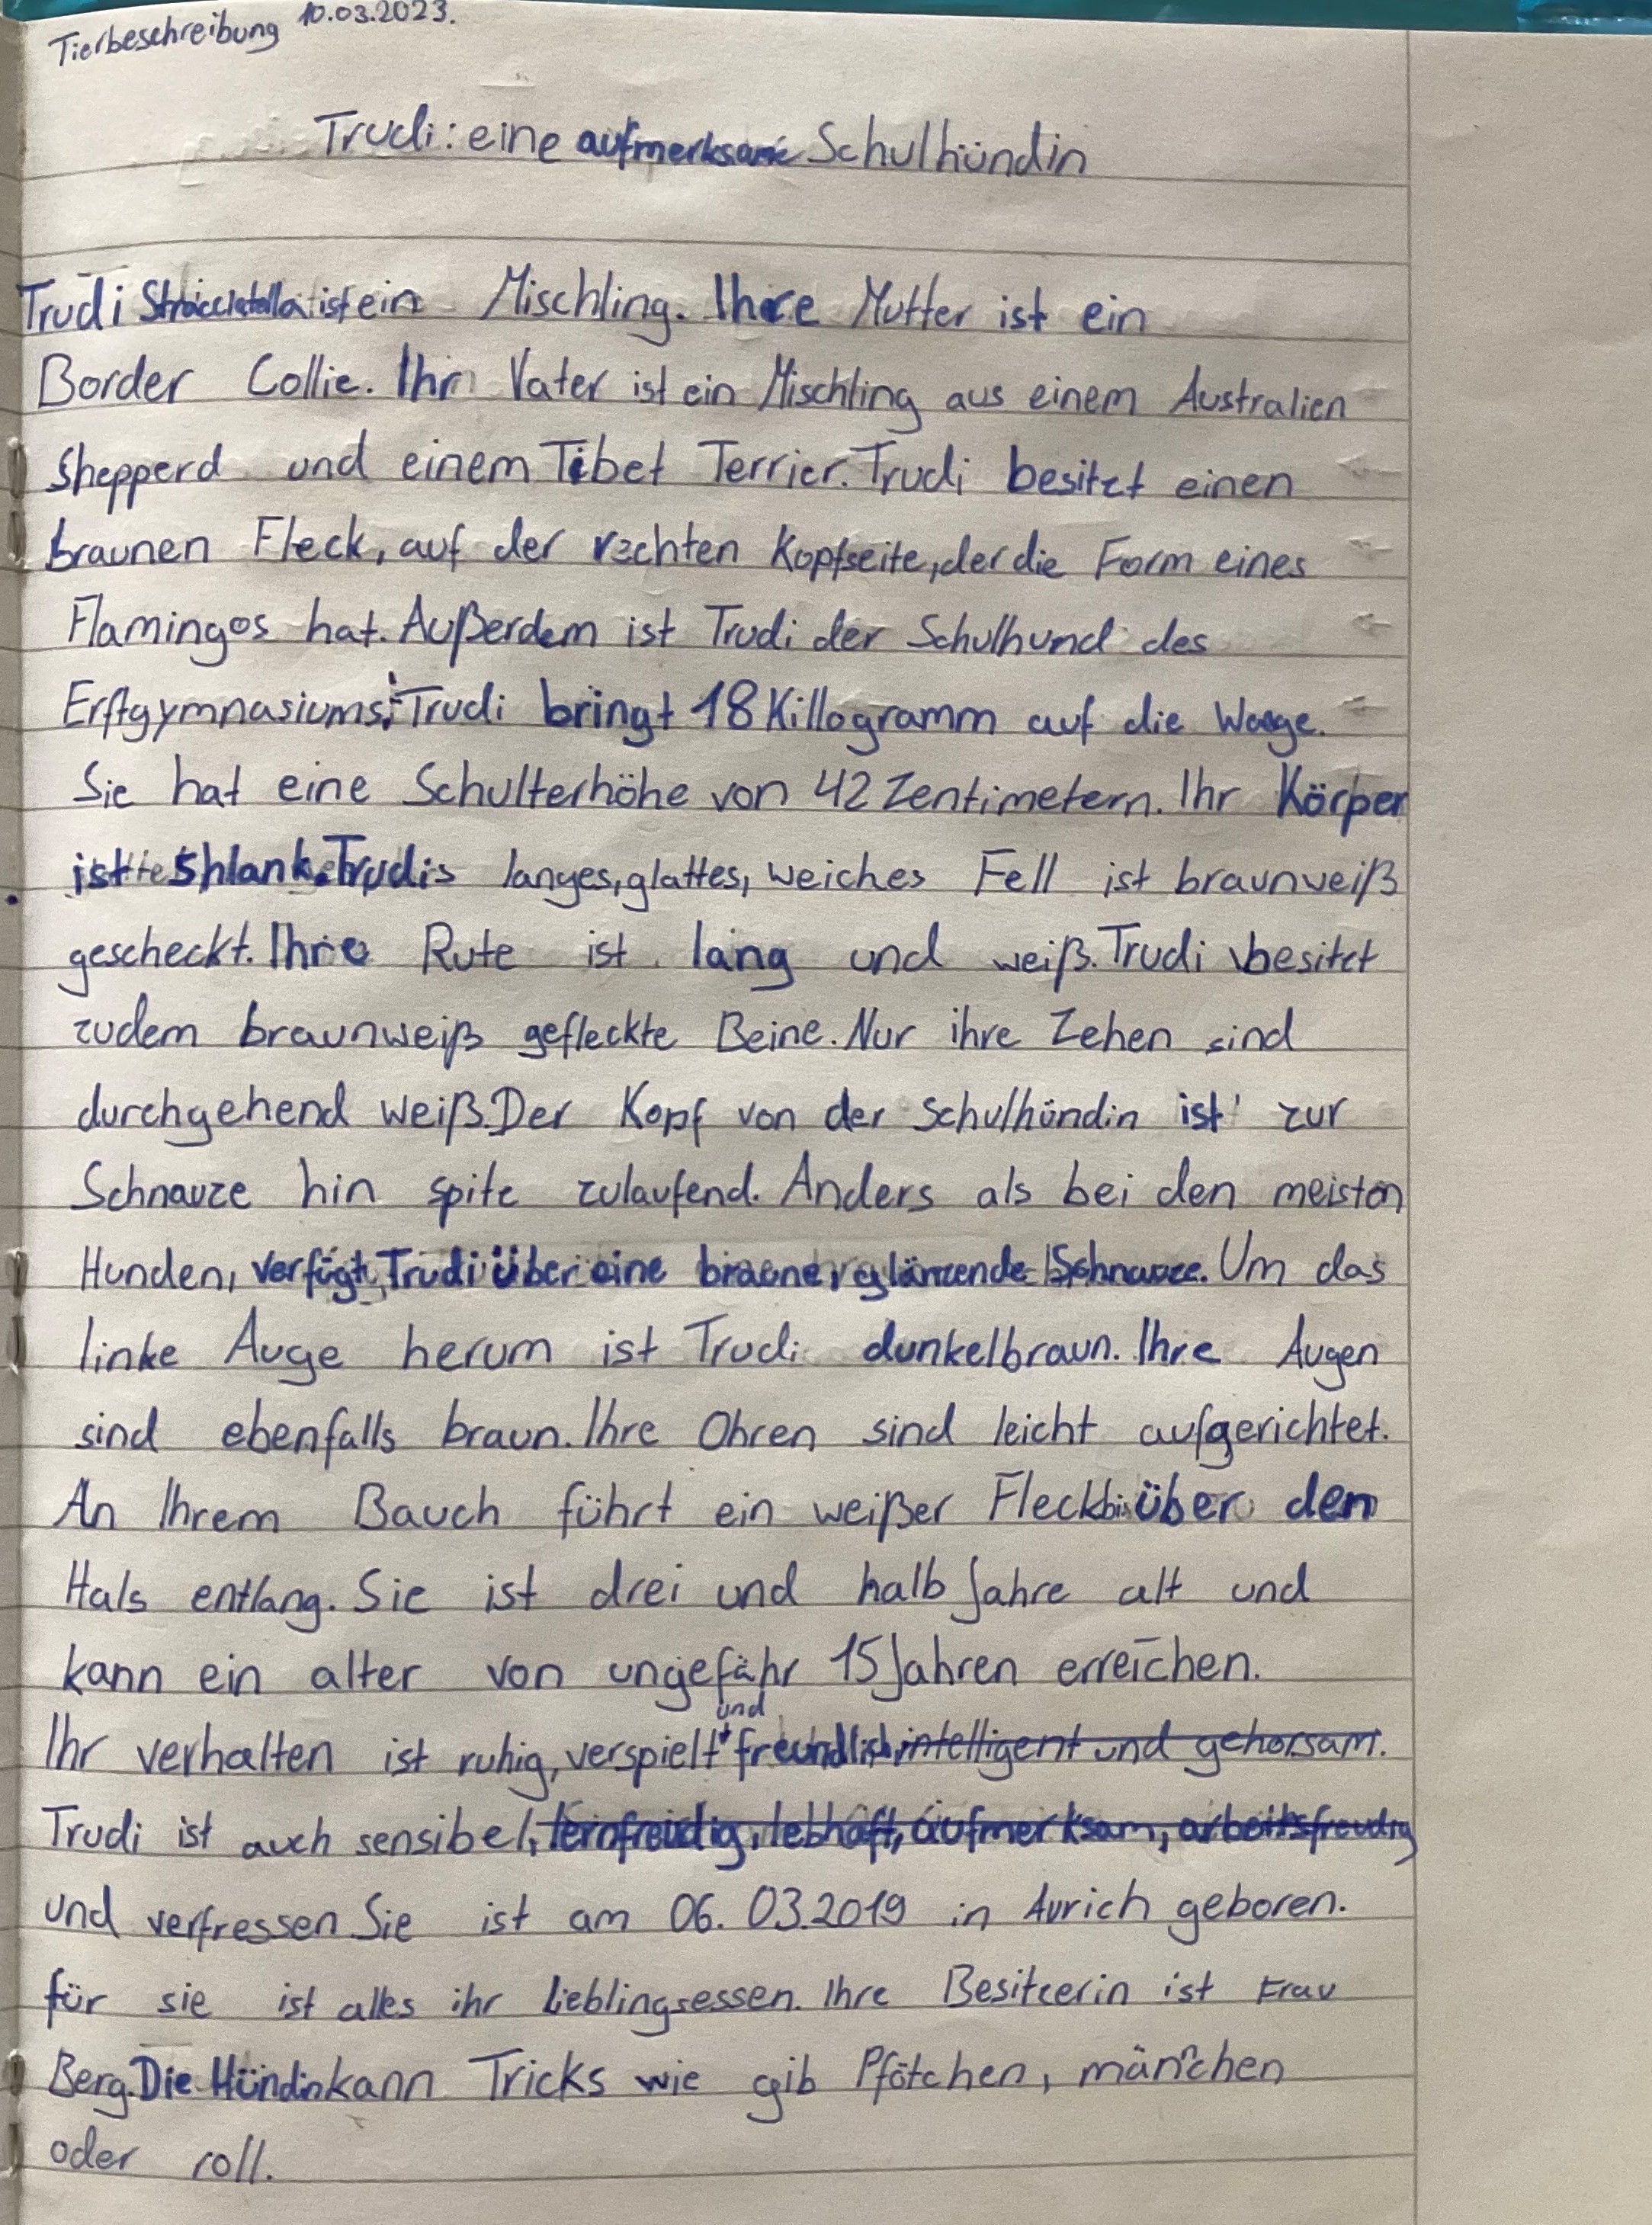 Tierbeschreibung 10.03.2023.
Trudi: eine aufmerksame Schulhündin
Trudi Stracciatella ist ein Mischling. Ihre Mutter ist ein
Border Collie. Ihr Vater ist ein Mischling aus einem Australien
Shepperd und einem Tibet Terrier. Trudi besitzt einen
braunen Fleck, auf der rechten Kopfseite, der die Form eines
Flamingos hat. Außerdem ist Trudi der Schulhund des
Erftgymnasiums. Trudi bringt 18 Killogramm auf die Waage.
Sie hat eine Schulterhöhe von 42 Zentimetern. Ihr Körper
ist shlank. Trudis langes, glattes, weiches Fell ist braunweiß
gescheckt. Ihre Rute ist lang und weiß. Trudi besitzt
zudem braunweiß gefleckte Beine. Nur ihre Zehen sind
durchgehend weiß. Der Kopf von der Schulhündin ist zur
Schnauze hin spitz zulaufend. Anders als bei den meisten
Hunden, verfügt Trudi über eine braune, glänzende Schnauze. Um das
linke Auge herum ist Trudi dunkelbraun. Ihre Augen
sind ebenfalls braun. Ihre Ohren sind leicht aufgerichtet.
An Ihrem Bauch führt ein weißer Fleck bis über den
Hals entlang. Sie ist drei und halb Jahre alt und
kann ein alter von ungefähr 15 Jahren erreichen.
Ihr verhalten ist ruhig, verspielt und freundlich, intelligent und gehorsam.
Trudi ist auch sensibel, lernfreudig, lebhaft, aufmerksam, arbeitsfreudig
und verfressen. Sie ist am 06.03.2019 in Aurich geboren.
für sie ist alles ihr Lieblingsessen. Ihre Besitzerin ist Frau
Berg. Die Hündin kann Tricks wie gib Pfötchen, männchen
oder roll.